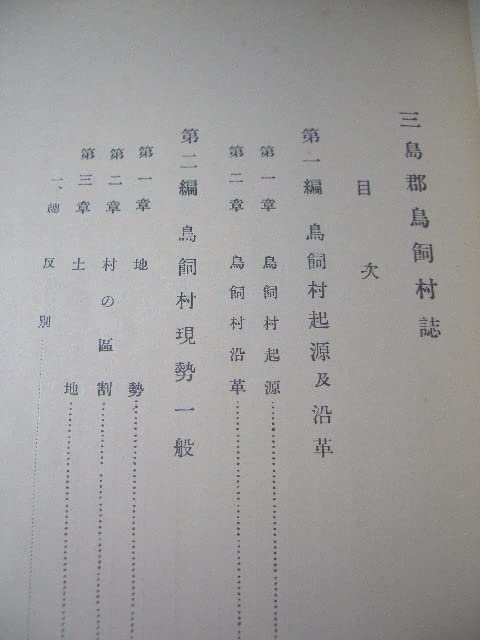 三島郡鳥飼村誌
目次
第一編 鳥飼村起源及沿革
第一章 鳥飼村起源
第二章 鳥飼村沿革
第二編 鳥飼村現勢一般
第一章 地勢
第二章 村の區割
第三章 土地
一、總反別